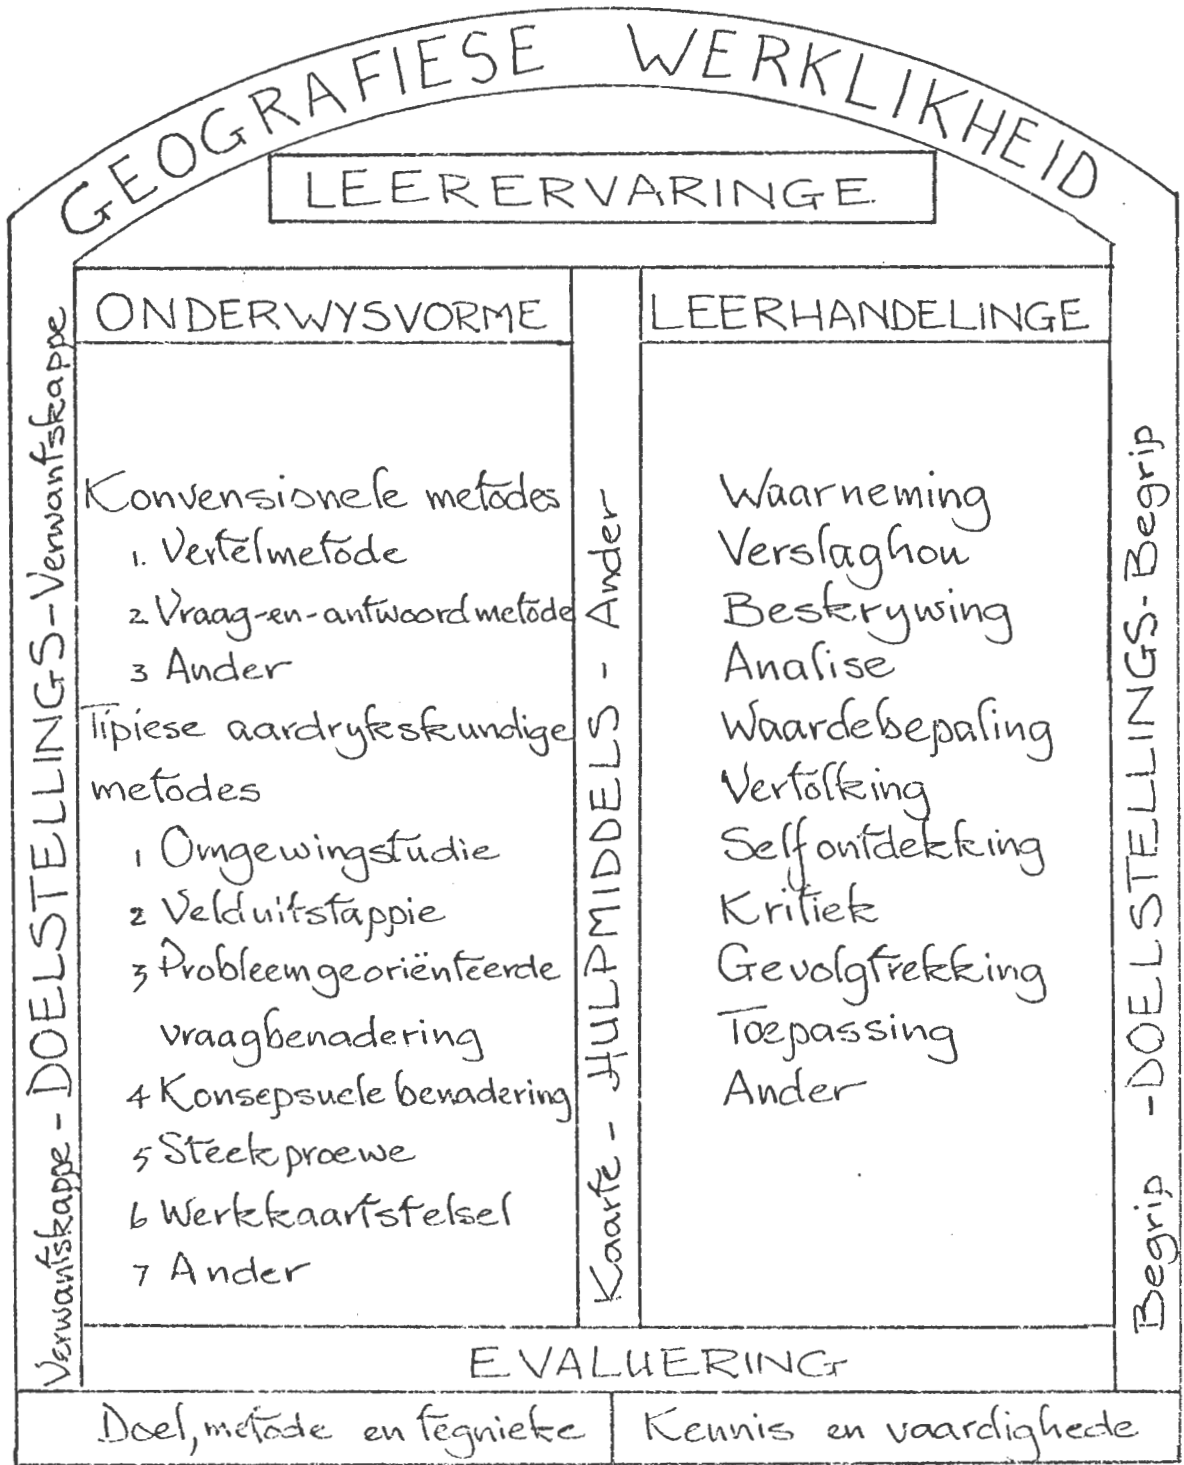 GEOGRAFIESE WERKLIKHEID
LEERERVARINGE
Verwantskappe - DOELSTELLINGS - Verwantskappe
ONDERWYSVORME
Konvensionele metodes
1. Vertelmetode
2 Vraag-en-antwoordmetode
3 Ander
Tipiese aardrykskundige
metodes
1 Omgewingstudie
2 Velduitstappie
3 Probleemgeoriënteerde
vraagbenadering
4 Konsepsuele benadering
5 Steekproewe
6 Werkkaartstelsel
7 Ander
Kaarte - HULPMIDDELS - Ander
LEERHANDELINGE
Waarneming
Verslaghou
Beskrywing
Analise
Waardebepaling
Vertolking
Selfontdekking
Kritiek
Gevolgtrekking
Toepassing
Ander
Begrip - DOELSTELLINGS - Begrip
EVALUERING
Doel, metode en tegnieke
Kennis en vaardighede